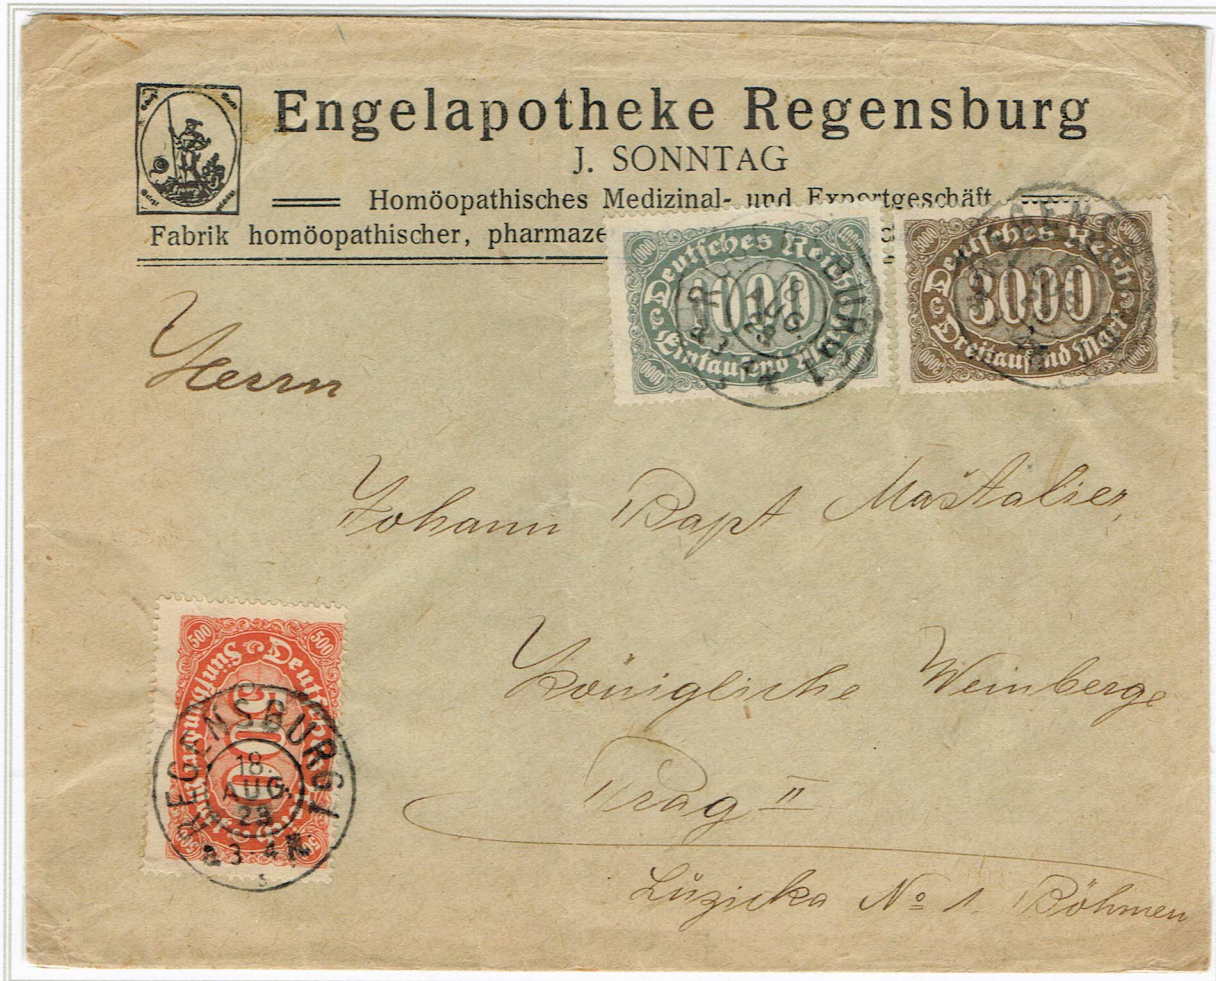 Engelapotheke Regensburg
J. SONNTAG
Homöopathisches Medizinal- und Exportgeschäft
Fabrik homöopathischer, pharmaze
1000 1000 Deutsches Reich 1000 Eintausend Mark 1000
3000 3000 Deutsches Reich 3000 Dreitausend Mark 3000
REGENSBURG 1
18. AUG. 23
Herrn
Johann Bapt Maštalier,
Königliche Weinberge
Prag II
Lůzicka No 1. Böhmen
500 500 Deutsches Reich 500 Fünfhundert Mark 500
REGENSBURG 1
18.
AUG.
23
3-4 N.